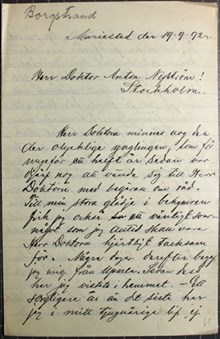 Borgstrand
Mariestad den 19-9-92.
Herr Doktor Anton Nyström!
Stockholm.
Herr Doktorn minnes nog den
der olyckliga ynglingen, som för
ungefär ett halft år sedan var
djerf nog att vända sig till Herr
Doktorn med begäran om råd.
Till min stora glädje i bekymren
fick jag också ett vänligt svar
något som jag alltid skall vara
Herr Doktorn hjertligt tacksam
för. Några dagar derefter begaf
jag mig från Upsala. Sedan dess
har jag vistats i hemmet. – Ett
sorgligare år än det sista har
jag i mitt tjuguåriga lif ej